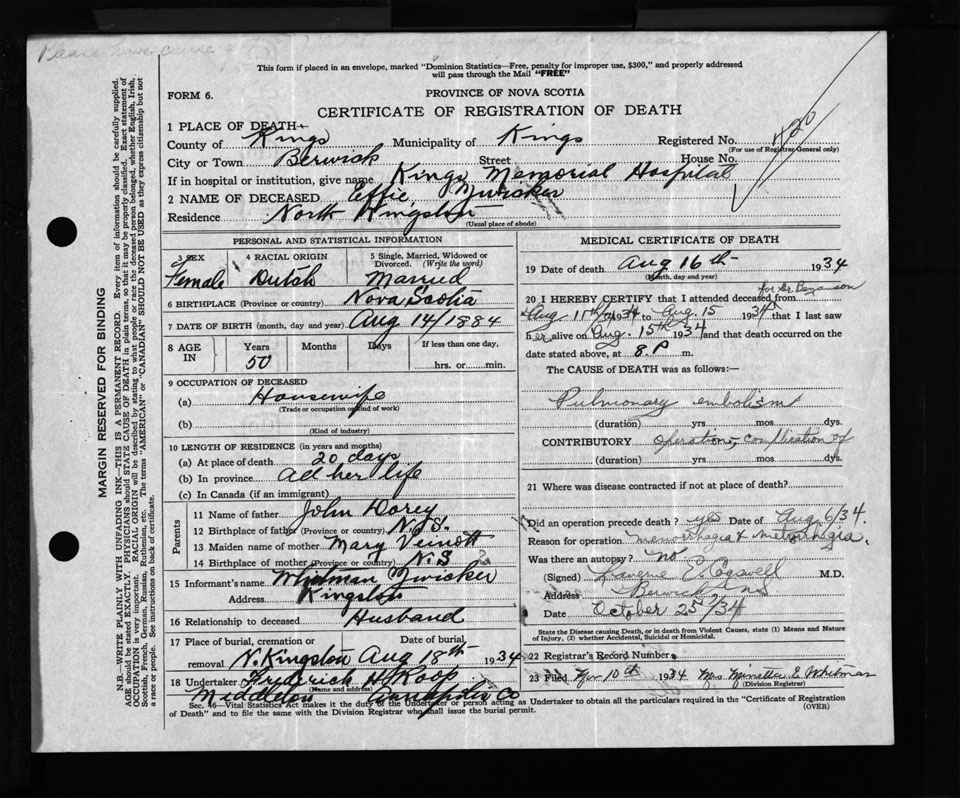 Please have cause
This form if placed in an envelope, marked "Dominion Statistics—Free, penalty for improper use, $300," and properly addressed
will pass through the Mail "FREE"
FORM 6.
PROVINCE OF NOVA SCOTIA
CERTIFICATE OF REGISTRATION OF DEATH
1 PLACE OF DEATH—
County of Kings Municipality of Kings Registered No. 420
(For use of Registrar General only)
City or Town Berwick Street House No.
If in hospital or institution, give name Kings Memorial Hospital
2 NAME OF DECEASED Effie Zwicker
Residence North Kingston
(Usual place of abode)
PERSONAL AND STATISTICAL INFORMATION
3 SEX 4 RACIAL ORIGIN 5 Single, Married, Widowed or Divorced. (Write the word)
Female Dutch Married
6 BIRTHPLACE (Province or country) Nova Scotia
7 DATE OF BIRTH (month, day and year) Aug 14/1884
8 AGE IN Years Months Days If less than one day,
50 hrs. or min.
9 OCCUPATION OF DECEASED
(a) Housewife
(Trade or occupation or kind of work)
(b)
(Kind of industry)
10 LENGTH OF RESIDENCE (in years and months)
(a) At place of death 20 days
(b) In province All her life
(c) In Canada (if an immigrant)
Parents
11 Name of father John Dorey
12 Birthplace of father (Province or country) N.S.
13 Maiden name of mother Mary Veinott
14 Birthplace of mother (Province or country) N.S
15 Informant's name Whitman Zwicker
Address Kingston
16 Relationship to deceased Husband
17 Place of burial, cremation or removal Date of burial,
N. Kingston Aug 18th 1934
18 Undertaker Frederick H Roop
(Name and address)
Middleton Annapolis Co
MEDICAL CERTIFICATE OF DEATH
19 Date of death Aug 16th 1934
(Month, day and year)
for Dr Bezanson
20 I HEREBY CERTIFY that I attended deceased from
Aug 11th 1934 to Aug 15 1934 that I last saw
her alive on Aug. 15th 1934 and that death occurred on the
date stated above, at 8. P m.
The CAUSE of DEATH was as follows:—
Pulmonary embolism
(duration) yrs mos dys.
CONTRIBUTORY Operation, complication of
(duration) yrs mos dys.
21 Where was disease contracted if not at place of death?
Did an operation precede death? yes Date of Aug 6/34.
Reason for operation menorrhagia & metrorrhagia.
Was there an autopsy? no
(Signed) Laverie E Cogswell M.D.
Address Berwick NS
Date October 25/34
State the Disease causing Death, or in death from Violent Causes, state (1) Means and Nature
of Injury, (2) whether Accidental, Suicidal or Homicidal.
22 Registrar's Record Number
23 Filed 10th 1934 Mrs. Minetta E. Whitman
(Division Registrar)
Sec. 16—Vital Statistics Act makes it the duty of the Undertaker or person acting as Undertaker to obtain all the particulars required in the "Certificate of Registration
of Death" and to file the same with the Division Registrar who shall issue the burial permit.
(OVER)
MARGIN RESERVED FOR BINDING
N.B.—WRITE PLAINLY WITH UNFADING INK—THIS IS A PERMANENT RECORD. Every item of information should be carefully supplied.
AGE should be stated EXACTLY. PHYSICIANS should STATE CAUSE OF DEATH in plain terms, so that it may be properly classified. Exact statement of
OCCUPATION is very important. RACIAL ORIGIN will be described by stating to what people or race the deceased person belonged, whether English, Irish,
Scottish, French, German, Russian, Ruthenian, etc. The terms "AMERICAN" or "CANADIAN" SHOULD NOT BE USED as they express citizenship but not
a race or people. See instructions on back of certificate.